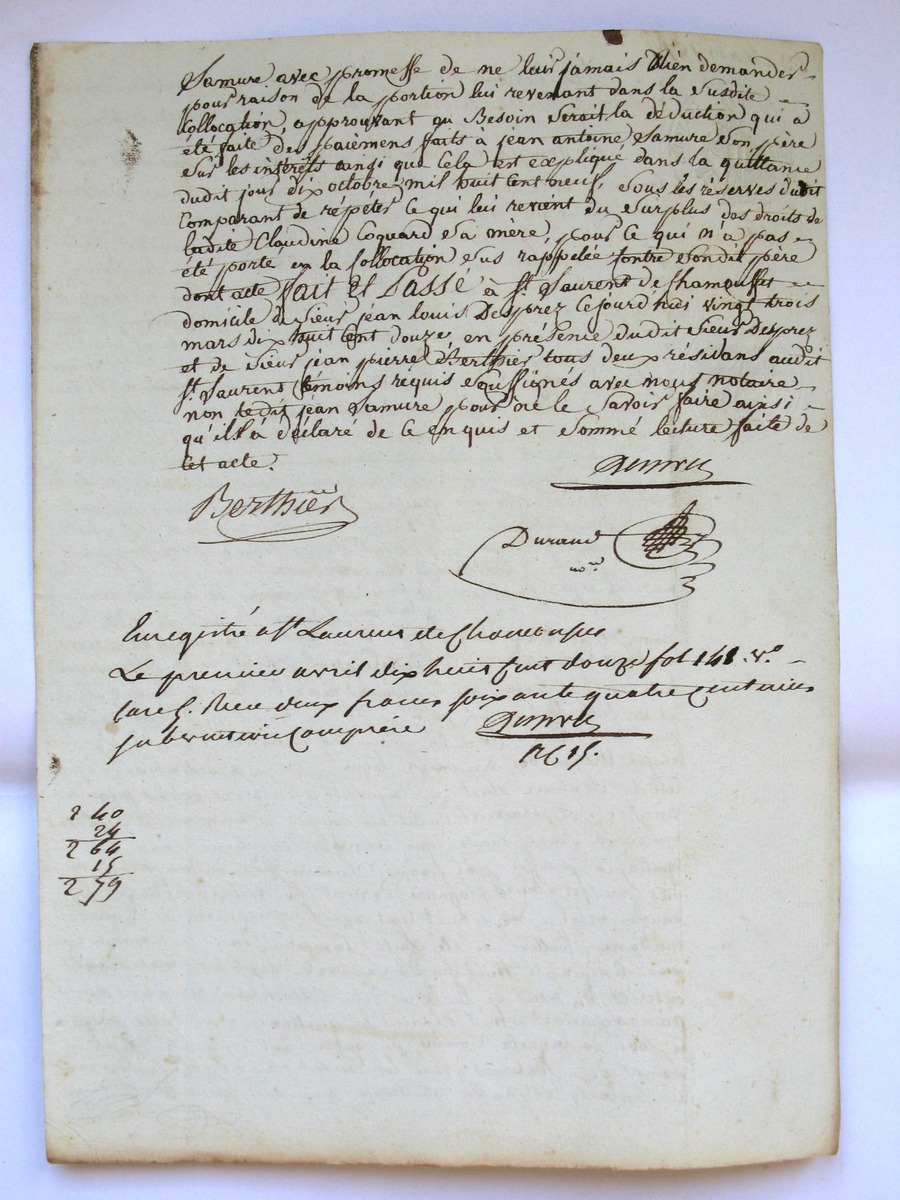 Samure avec promesse de ne leur jamais Rien demander
pour raison de la portion lui revenant dans la susdite
Collocation, approuvant au Besoin serait la déduction qui a
été faite des paiemens faits à jean antoine Samure son père
sur les intérêts ainsi que cela est expliqué dans la quittance
dudit jour dix octobre mil huit cent neuf, sous les réserves dudit
Comparant de répéter ce qui lui revient du surplus des droits de
ladite Claudine Coquard sa mère, pour ce qui n'a pas
été porté en la Collocation sus rappelée contre sondit père
dont acte fait et Passé à St. Laurent de Chamousset
domicile de sieur jean louis Desprez cejourd'hui vingt trois
mars dix huit cent douze, en présence dudit sieur Desprez
et de sieur jean pierre Berthier tous deux résidans audit
St. Laurent témoins requis soussignés avec nous notaire
non ledit jean Samure pour ne le savoir faire ainsi
qu'il l'a déclaré de ce enquis et sommé lecture faite de
cet acte.
Berthier
Durand
nore
Enregistré à St Laurent de Chamousset
Le premier avril dix huit cent douze fol 141. vo
case 5. Recu deux francs soixante quatre centimes
subvention Comprise
2 40
24
2 64
15
2 79